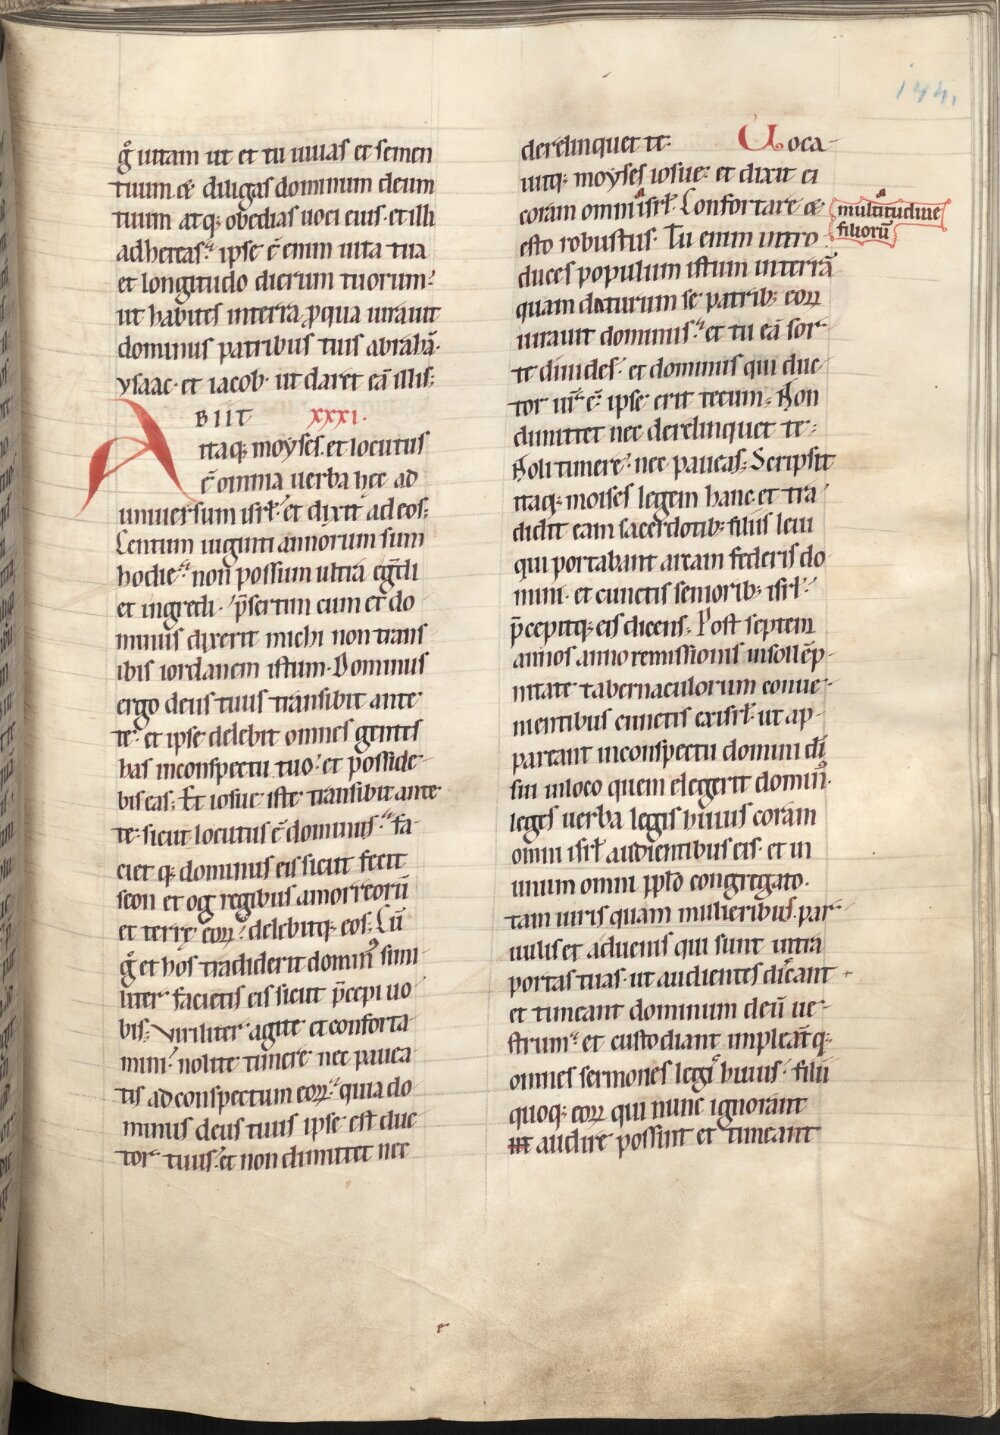 144.
g̊ uitam ut et tu uiuas et semen
tuum &̄ diligas dominum deum
tuum atq; obedias uoci eius· et illi
adhereas:' ipse ē enim uita tua
et longitudo dierum tuorum:'
ut habites interrā ꝓqua iurauit
dominus patribus tuis abrahā·
ysaac· et iacob· ut daret eā illis;
ABIIT xxxi.
itaq; moyses· et locutus
ē omnia uerba hęc ad
uniuersum isrł· et dixit ad eos;
Centum uiginti annorum sum
hodie:' non possum ultra eg̅di
et ingredi· p̄sertim cum et do
minus dixerit michi non trans
ibis iordanem istum· Dominus
ergo deus tuus transibit ante
te· et ipse delebit omnes gentes
has inconspectu tuo:' et posside-
bis eas; Et iosue iste transibit ante
te· sicut locutus ē dominus:' fa-
ciet q; dominus eis sicut fecit
seon et og regibus amorreorū
et terrę eoꝝ· delebitq; eos; Cū
g̊ et hos tradiderit domin᾽ simi-
liter facietis eis sicut p̄cepi uo
bis; Viriliter agite et conforta
mini· nolite timere nec pauea
tis adconspectum eoꝝ:' quia do
minus deus tuus ipse est duc
tor tuus· et non dimittet nec
derelinquet te· Uoca-
uitq; moyses iosue· et dixit ei
coram omni isrł· Confortare &
esto robustus· Tu enim intro
duces populum istum interrā
quam daturum se patrib; eoꝝ
iurauit dominus:' et tu eā sor-
te diuides· et dominus qui duc
tor uꝛ̄ ē· ipse erit tecum; Non
dimittet nec derelinquet te;
Noli timere· nec paueas; Scripsit
itaq; moises legem hanc et tra
didit eam sacerdotib; filiis leui
qui portabant arcam federis do
mini· et cunctis seniorib; isrł·
p̄cepitq; eis dicens; Post septem
annos anno remissionis insollēp-
nitate tabernaculorum conue-
nientibus cunctis exisrł· ut ap-
pareant inconspectu domini di̅
sui inloco quem elegerit domin᾽·
leges uerba legis huius coram
omni isrł audientibus eis· et in
unum omni ꝓplo congregato·
tam uiris quam mulieribus· par-
uulis et aduenis qui sunt intra
portas tuas· ut audientes discant
et timeant dominum deū ue-
strum:' et custodiant impleāt q;
omnes sermones legis huius· filii
quoq; eoꝝ qui nunc ignorant
ut audire possint et timeant
multitudine
filiorū